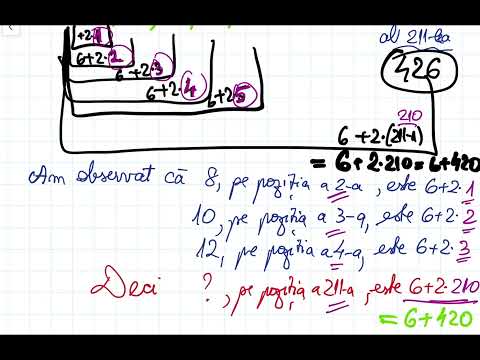 +2·1
6+2·2
6+2·3
6+2·4
6+2·5
al 211-lea
426
210
6+2·(211-1)
= 6+2·210=6+420
Am observat că 8, pe poziția a 2-a, este 6+2·1
10, pe poziția a 3-a, este 6+2·2
12, pe poziția a 4-a, este 6+2·3
Deci ?, pe poziția a 211-a, este 6+2·210
= 6+420